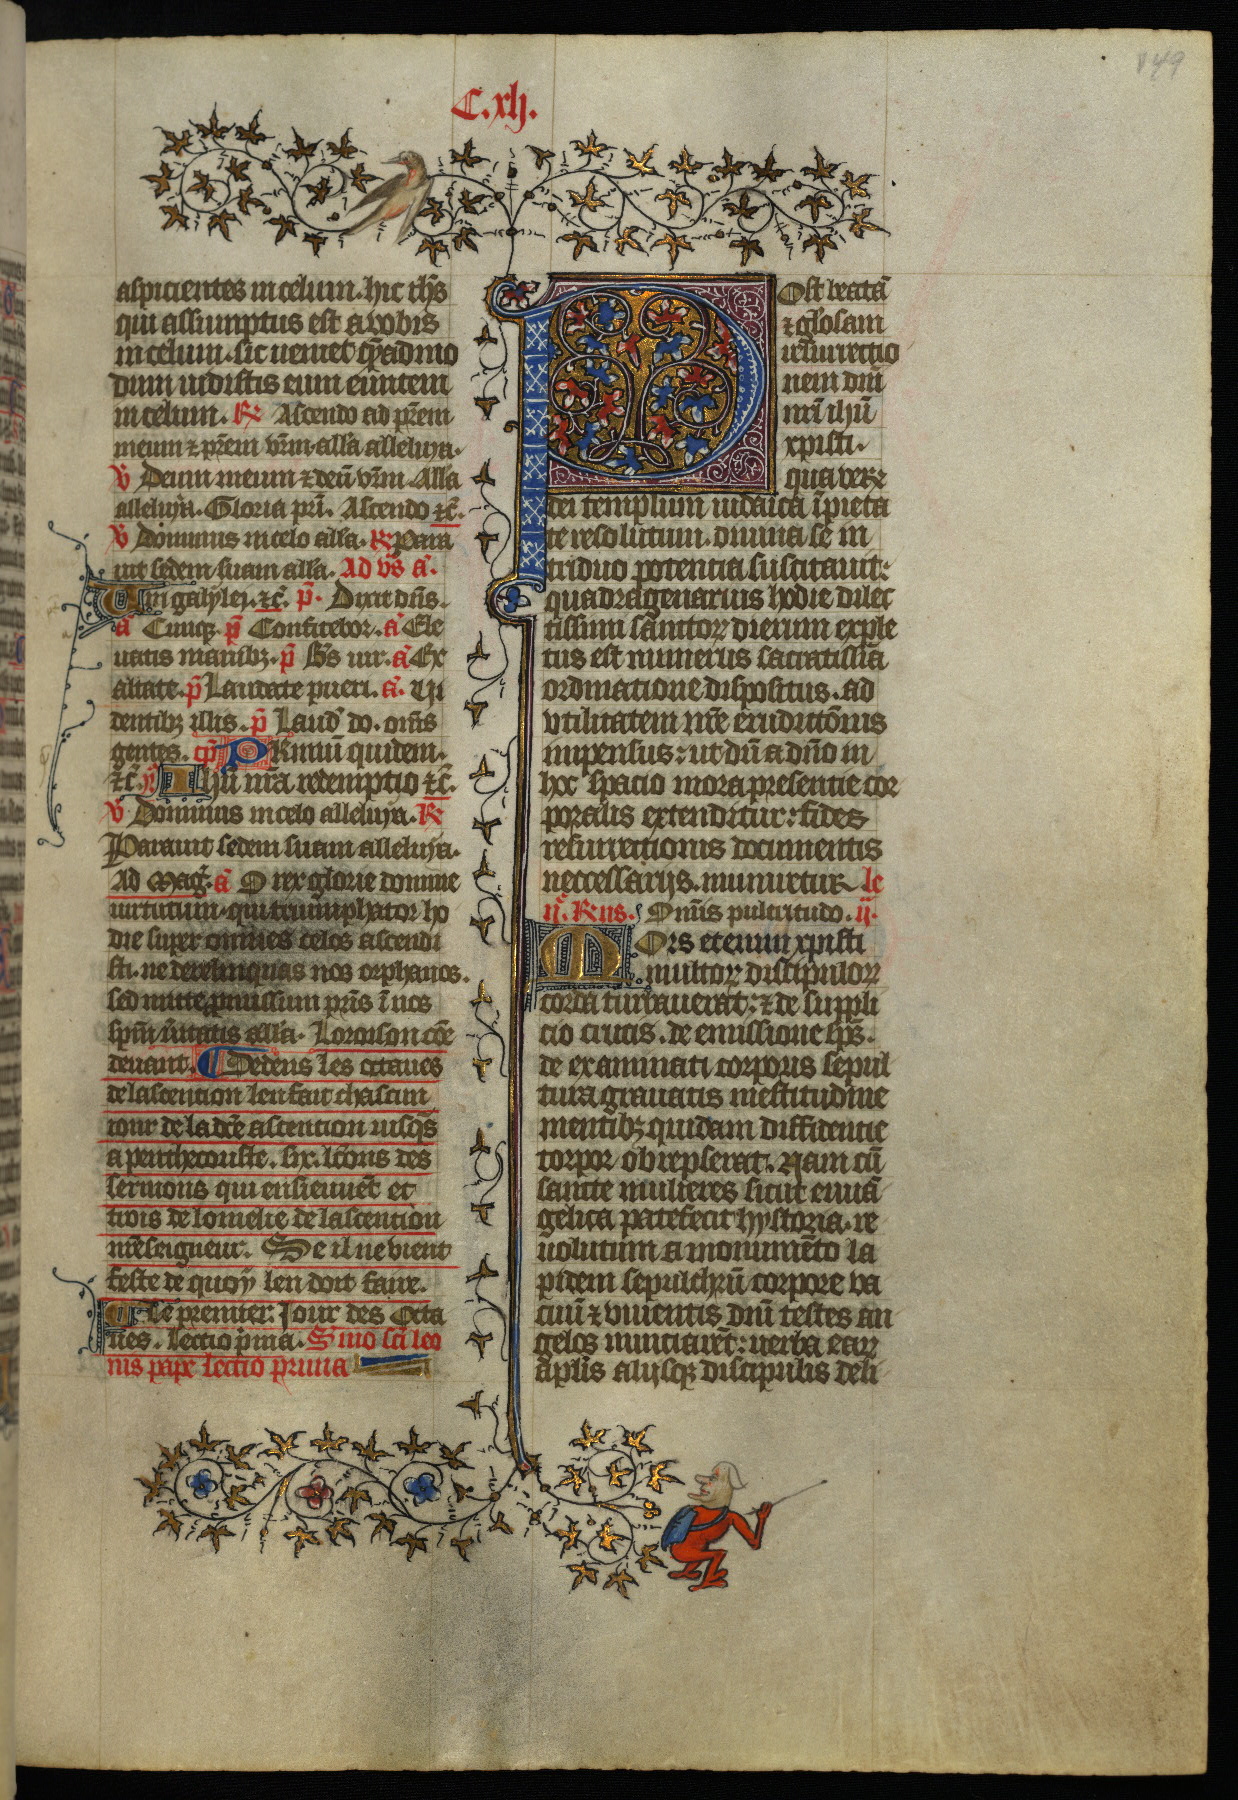 C.xlj.
149
aspicientes in celum. hic ihs̄
qui assumptus est a vobis
in celum. sic ueniet qͫadmo
dum uidistis eum euntem
in celum. R̸ Ascendo ad prēm
meum ⁊ prēm vrm̄ all̄a alleluya.
V̸ Deum meum ⁊ deū vrm̄. All̄a
alleluya. Gloria prī. Ascendo ⁊c̄.
V̸ Dominus in celo all̄a. R̸ Para
uit sedem suam all̄a. Ad vs̄ a͞.
Uiri galylei. ⁊c̄. p͞. Dixit dns̄.
a͞ Cumqꝫ. p͞ Confitebor. a͞ Ele
uatis manibꝫ. p͞ Bs̄ uir. a͞ Ex
altate. p͞ Laudate pueri. a͞. Vi
dentibꝫ illis. p͞ Laud̄ do. om̄s
gentes. cp̄ PRimū quidem.
⁊c̄. y͞ Ihū nrā redemptio ⁊c̄.
V̸ Dominus in celo alleluya. R̸
Parauit sedem suam alleluya.
Ad Maḡ. a͞ O rex glorie domine
uirtutum. qui triumphator ho
die super omnes celos ascendi
sti. ne derelinquas nos orphanos.
sed mitte promissum prīs ī nos
spm̄ ūitatis all̄a. Loroison cōe
deuant. Dedens les octaues
de lascention len fait chascun
iour de la dc̄e ascention iusqs̄
a penthecouste. .ix. lcōns des
sermons qui ensieuuēt et
trois de lomelie de lascention
nrē seigneur. Se il ne vient
feste de quoy len doit faire.
Le premier Jour des Octa
ues. Lectio p̄ma. Smo scī leo
nis pape lectio prima
Post beatā
⁊ gl̄osam
resurrectio
nem dnī
nrī ihū
xpisti.
qua vere
dei templum iudaica īpieta
te resolutum. diuina se in
triduo potentia suscitauit:
quadragenarius hodie dilec
tissimi sanctoꝝ dierum exple
tus est numerus sacratissīa
ordinatione dispositus. ad
vtilitatem nrē eruditōnis
inpensus: ut dū a dn̄o in
hoc spacio mora presentie cor
poralis extenditur: fides
resurrectionis documentis
neccessarijs. muniretur le
ij͞. R̸us. Om̄is pulcritudo. ij.
Mors etenim xpisti
multoꝝ discipuloꝝ
corda turbauerat: ⁊ de suppli
cio crucis. de emissione sps̄.
de exanimati corporis sepul
tura grauatis mestitudine
mentibꝫ quidam diffidentie
torpor obrepserat. Nam cū
sancte mulieres sicut euuā
gelica patefecit hystoria. re
uolutum a monumēto la
pidem sepulchrū corpore va
cuū ⁊ viuentis dnī testes an
gelos nunciarēt: uerba eaꝝ
aplis̄ alijsqꝫ discipulis deli